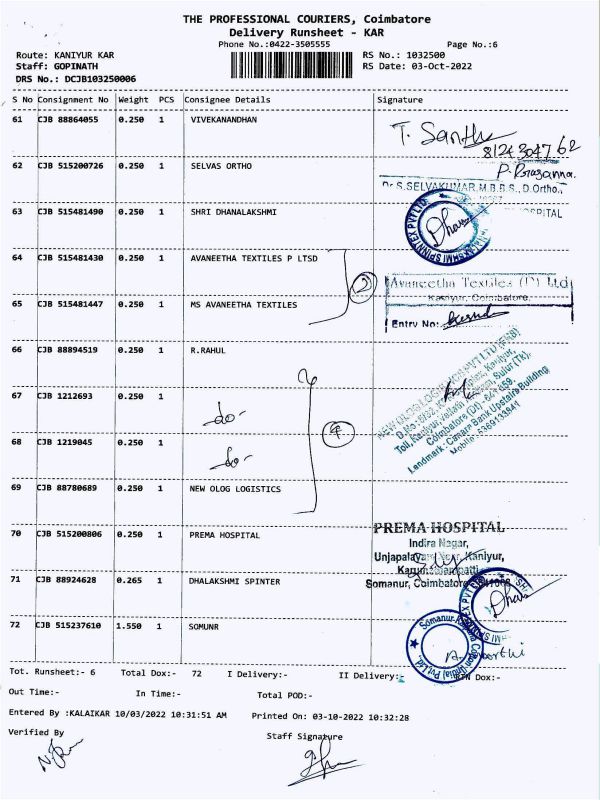 THE PROFESSIONAL COURIERS, Coimbatore
Delivery Runsheet - KAR
Phone No.:0422-3505555 Page No.:6
Route: KANIYUR KAR RS No.: 1032500
Staff: GOPINATH RS Date: 03-Oct-2022
DRS No.: DCJB103250006
S No Consignment No Weight PCS Consignee Details Signature
61 CJB 88864055 0.250 1 VIVEKANANDHAN
T. Santh
8124304762
62 CJB 515200726 0.250 1 SELVAS ORTHO
P. Prasanna.
Dr S.SELVAKUMAR,M.B.B.S.,D.Ortho.,
HOSPITAL
63 CJB 515481490 0.250 1 SHRI DHANALAKSHMI
64 CJB 515481430 0.250 1 AVANEETHA TEXTILES P LTSD
2
Avaneetha Textiles (P) Ltd
Kaniyur, Coimbatore.
65 CJB 515481447 0.250 1 MS AVANEETHA TEXTILES
Entry No:
66 CJB 88894519 0.250 1 R.RAHUL
NEW OLOG LOGISTICS PVT LTD
67 CJB 1212693 0.250 1
-do-
Coimbatore (Dt)
68 CJB 1219045 0.250 1
-do-
4
Landmark: Canara Bank Upstairs Building
69 CJB 88780689 0.250 1 NEW OLOG LOGISTICS
70 CJB 515200806 0.250 1 PREMA HOSPITAL
PREMA HOSPITAL
Indira Nagar,
Kaniyur,
Somanur, Coimbatore
71 CJB 88924628 0.265 1 DHALAKSHMI SPINTER
72 CJB 515237610 1.550 1 SOMUNR
Tot. Runsheet:- 6 Total Dox:- 72 I Delivery:- II Delivery:- RTN Dox:-
Out Time:- In Time:- Total POD:-
Entered By :KALAIKAR 10/03/2022 10:31:51 AM Printed On: 03-10-2022 10:32:28
Verified By Staff Signature